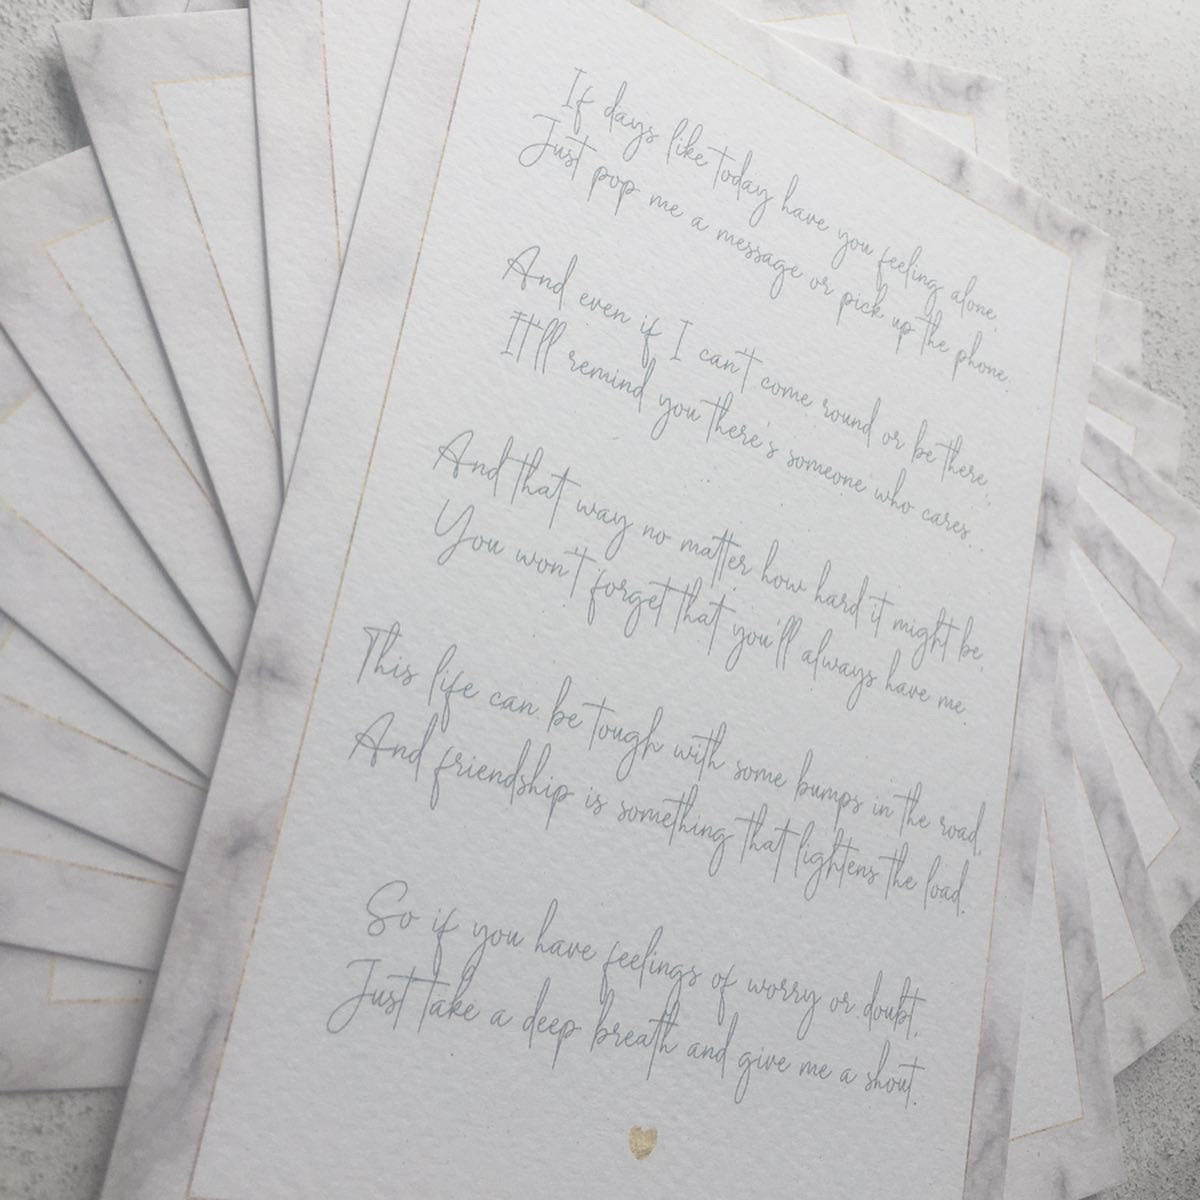 If days like today have you feeling alone,
Just pop me a message or pick up the phone.
And even if I can't come round or be there,
It'll remind you there's someone who cares...
And that way no matter how hard it might be,
You won't forget that you'll always have me.
This life can be tough with some bumps in the road,
And friendship is something that lightens the load.
So if you have feelings of worry or doubt,
Just take a deep breath and give me a shout.